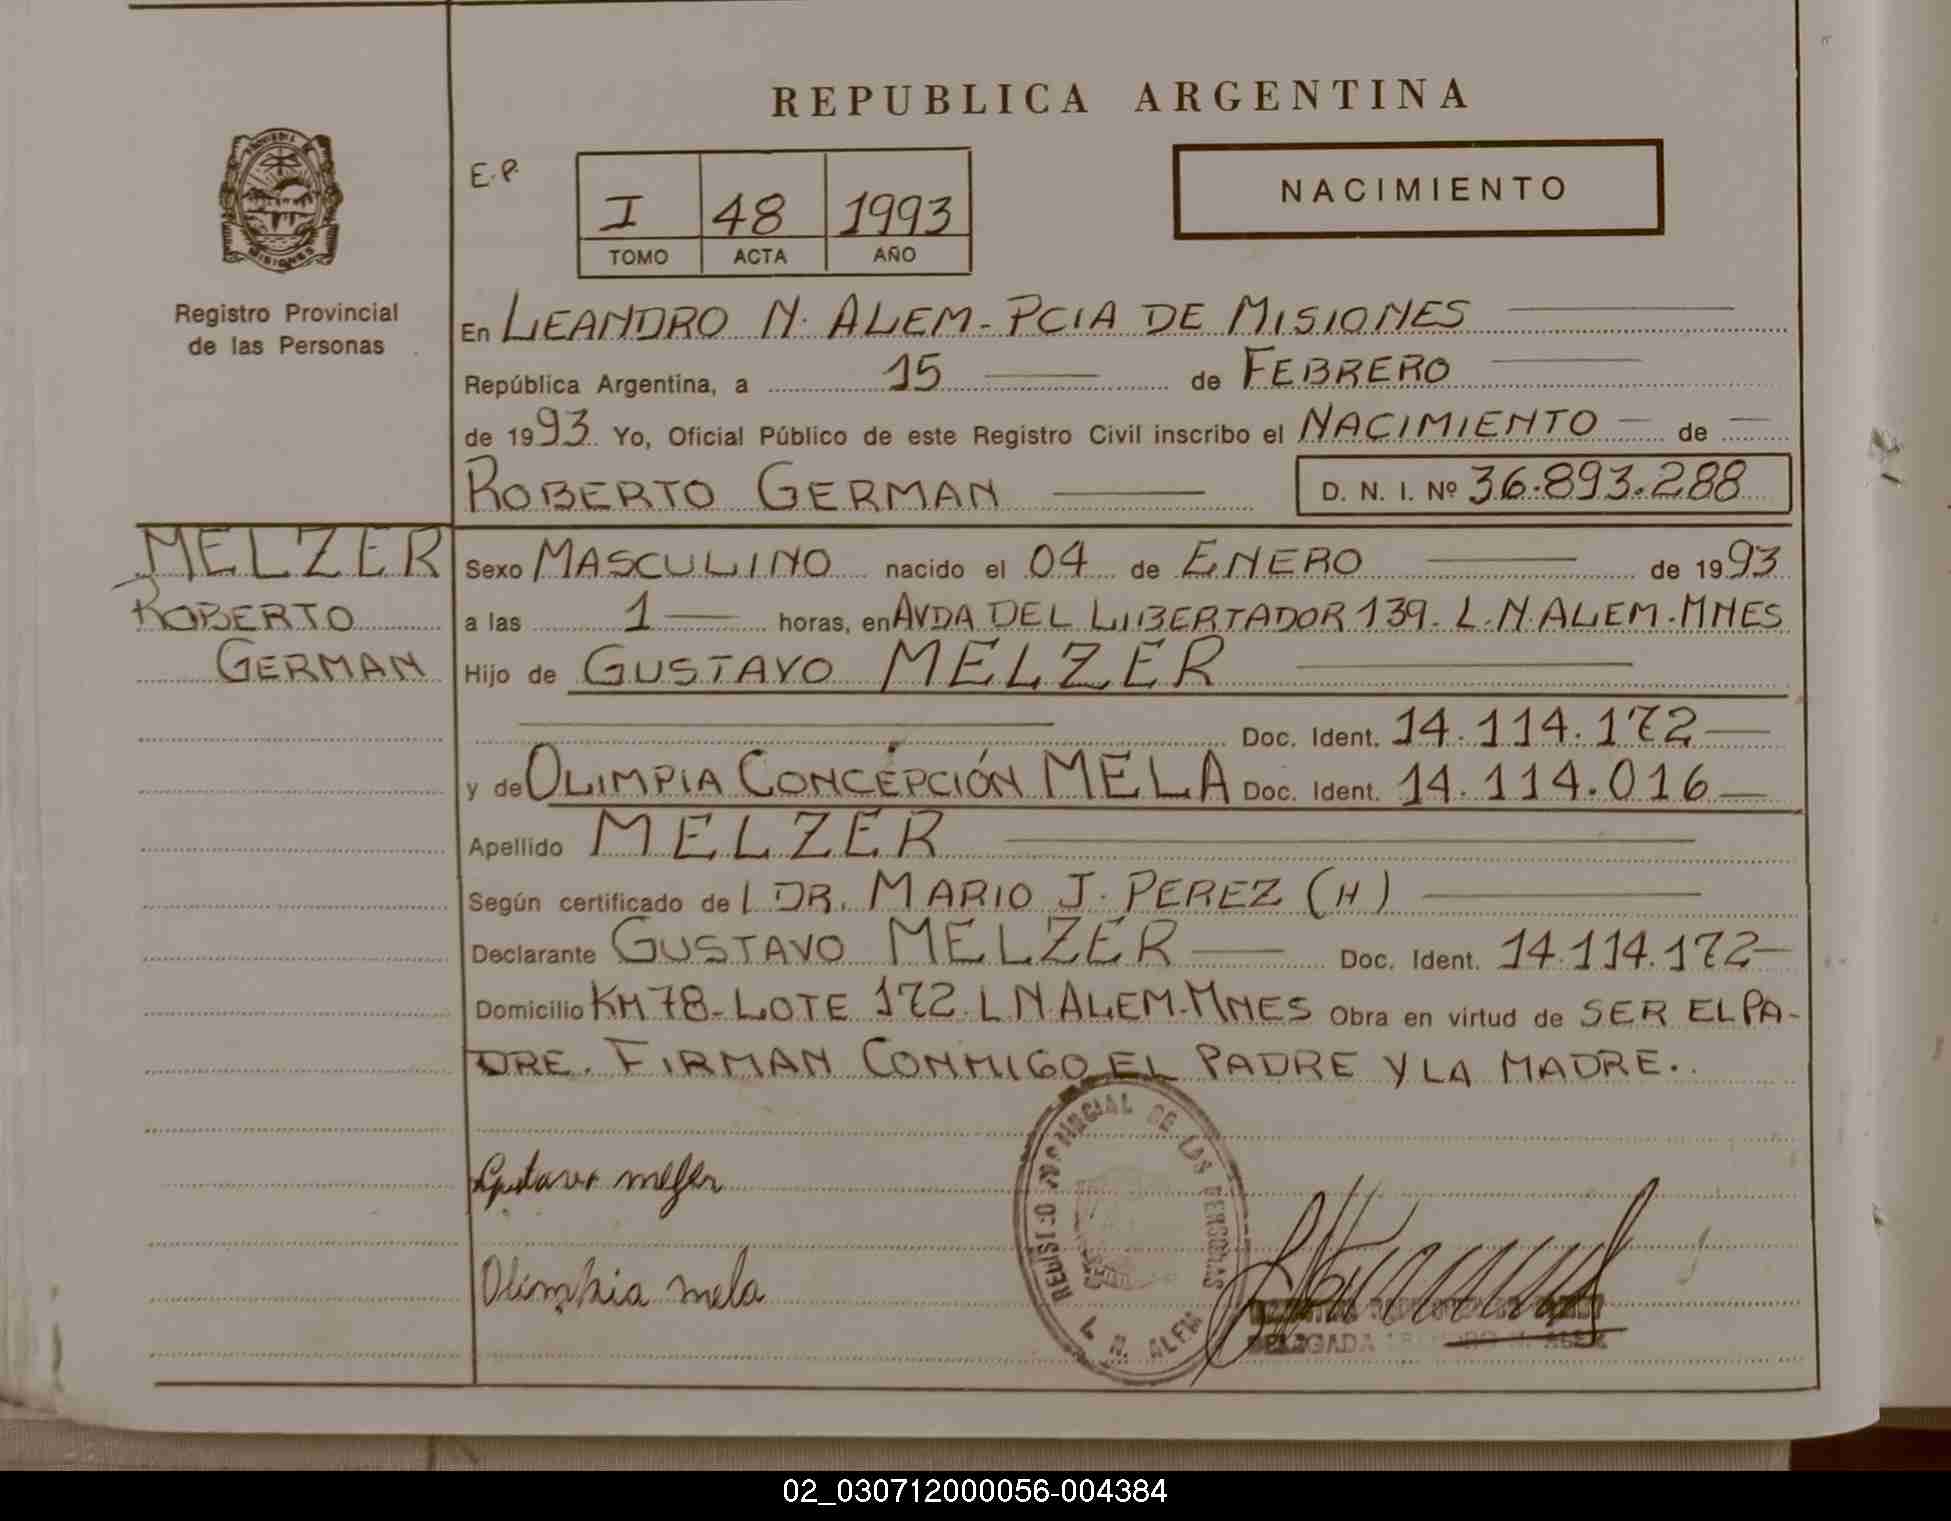 REPUBLICA ARGENTINA
E.P.
I 48 1993
TOMO ACTA AÑO
NACIMIENTO
Registro Provincial
de las Personas
En LEANDRO N. ALEM - PCIA DE MISIONES
República Argentina, a 15 de FEBRERO
de 1993 Yo, Oficial Público de este Registro Civil inscribo el NACIMIENTO de
ROBERTO GERMAN D. N. I. Nº 36.893.288
MELZER
ROBERTO
GERMAN
Sexo MASCULINO nacido el 04 de ENERO de 1993
a las 1 horas, en AVDA DEL LIBERTADOR 139. L.N. ALEM. MNES
Hijo de GUSTAVO MELZER
Doc. Ident. 14.114.172
y de OLIMPIA CONCEPCIÓN MELA Doc. Ident. 14.114.016
Apellido MELZER
Según certificado de L DR. MARIO J. PEREZ (H)
Declarante GUSTAVO MELZER Doc. Ident. 14.114.172
Domicilio KM 78 - LOTE 172. L N. ALEM - MNES Obra en virtud de SER EL PA-
DRE. FIRMAN CONMIGO EL PADRE Y LA MADRE.
Gustavo melzer
Olimpia mela
REGISTRO PROVINCIAL DE LAS PERSONAS
L. N. ALEM
DELEGADA LEANDRO N. ALEM
02_030712000056-004384